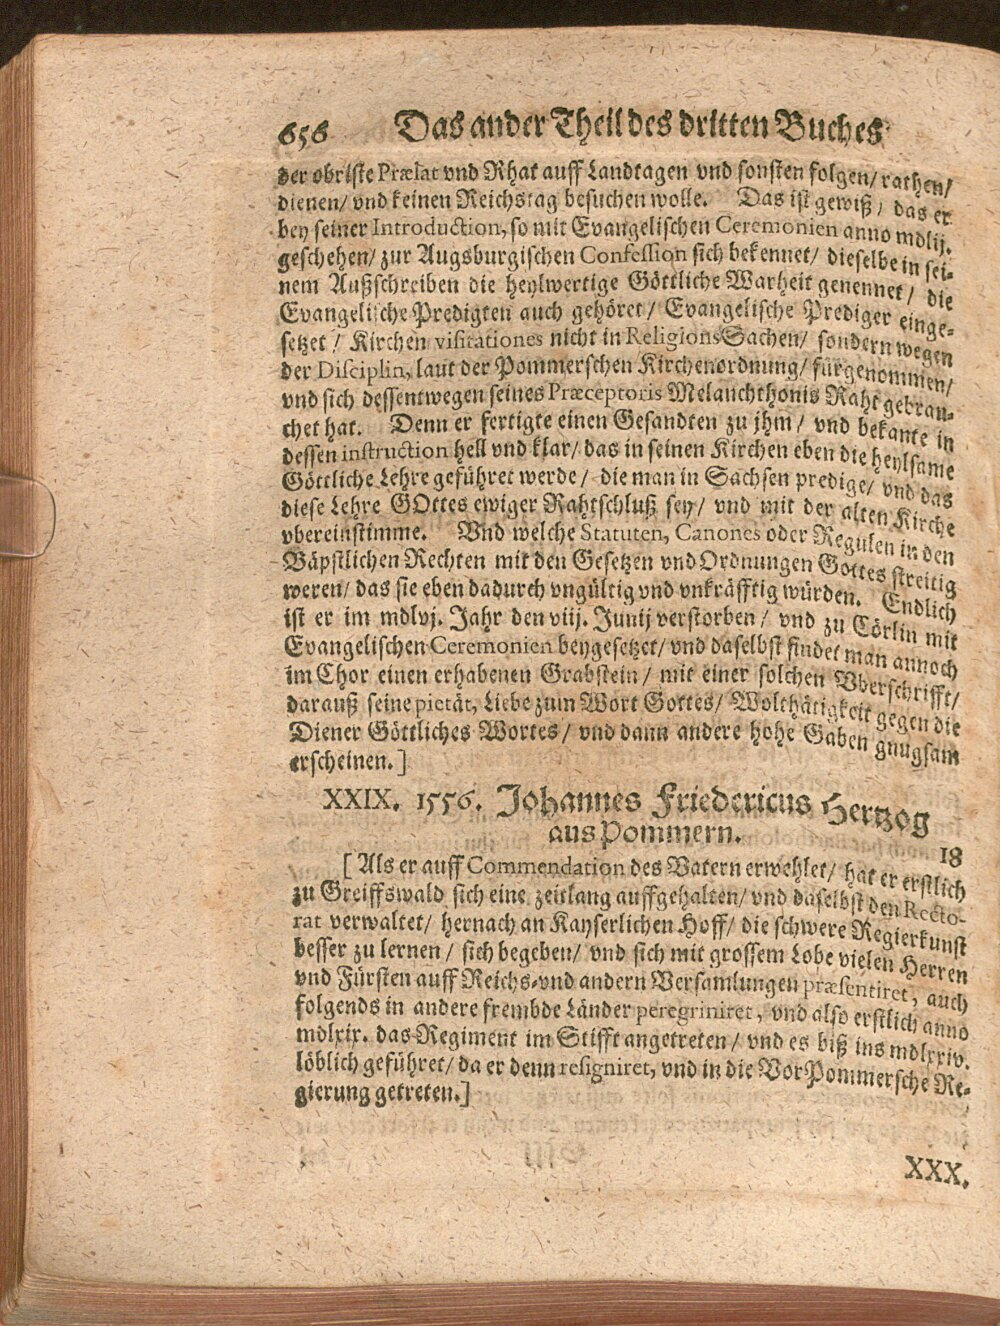 656 Das ander Theil des dritten Buches
der obriste Prælat vnd Rhat auff Landtagen vnd sonsten folgen/ rathen/
dienen/ vnd keinen Reichstag besuchen wolle. Das ist gewiß/ das er
bey seiner Introduction, so mit Evangelischen Ceremonien anno mdlij.
geschehen/ zur Augsburgischen Confession sich bekennet/ dieselbe in sei-
nem Außschreiben die heylwertige Göttliche Warheit genennet/ die
Evangelische Predigten auch gehöret/ Evangelische Prediger einge-
setzet/ Kirchen visitationes nicht in ReligionsSachen/ sondern wegen
der Disciplin, laut der Pommerschen Kirchenordnung/ fürgenommen/
vnd sich dessentwegen seines Præceptoris Melanchthonis Raht gebrau-
chet hat. Denn er fertigte einen Gesandten zu jhm/ vnd bekante in
dessen instruction hell vnd klar/ das in seinen Kirchen eben die heylsame
Göttliche Lehre geführet werde/ die man in Sachsen predige/ vnd das
diese Lehre GOttes ewiger Rahtschluß sey/ vnd mit der alten Kirche
vbereinstimme. Vnd welche Statuten, Canones oder Regulen in den
Bäpstlichen Rechten mit den Gesetzen vnd Ordnungen Gottes streitig
weren/ das sie eben dadurch vngültig vnd vnkräfftig würden. Endlich
ist er im mdlvj. Jahr den viij. Junij verstorben/ vnd zu Cörlin mit
Evangelischen Ceremonien beygesetzet/ vnd daselbst findet man annoch
im Chor einen erhabenen Grabstein/ mit einer solchen Vberschrifft/
darauß seine pietät, Liebe zum Wort Gottes/ Wolthätigkeit gegen die
Diener Göttliches Wortes/ vnd dann andere hohe Gaben gnugsam
erscheinen.]
XXIX. 1556. Johannes Friedericus Hertzog
aus Pommern. 18
[Als er auff Commendation des Vatern erwehlet/ hat er erstlich
zu Greiffswald sich eine zeitlang auffgehalten/ vnd daselbst den Recto-
rat verwaltet/ hernach an Kayserlichen Hoff/ die schwere Regierkunst
besser zu lernen/ sich begeben/ vnd sich mit grossem Lobe vielen Herren
vnd Fürsten auff Reichs-vnd andern Versamlungen præsentiret, auch
folgends in andere frembde Länder peregriniret, vnd also erstlich anno
mdlxix. das Regiment im Stifft angetreten/ vnd es biß ins mdlxxiv.
löblich geführet/ da er denn resigniret, vnd in die VorPommersche Re-
gierung getreten.]
XXX.